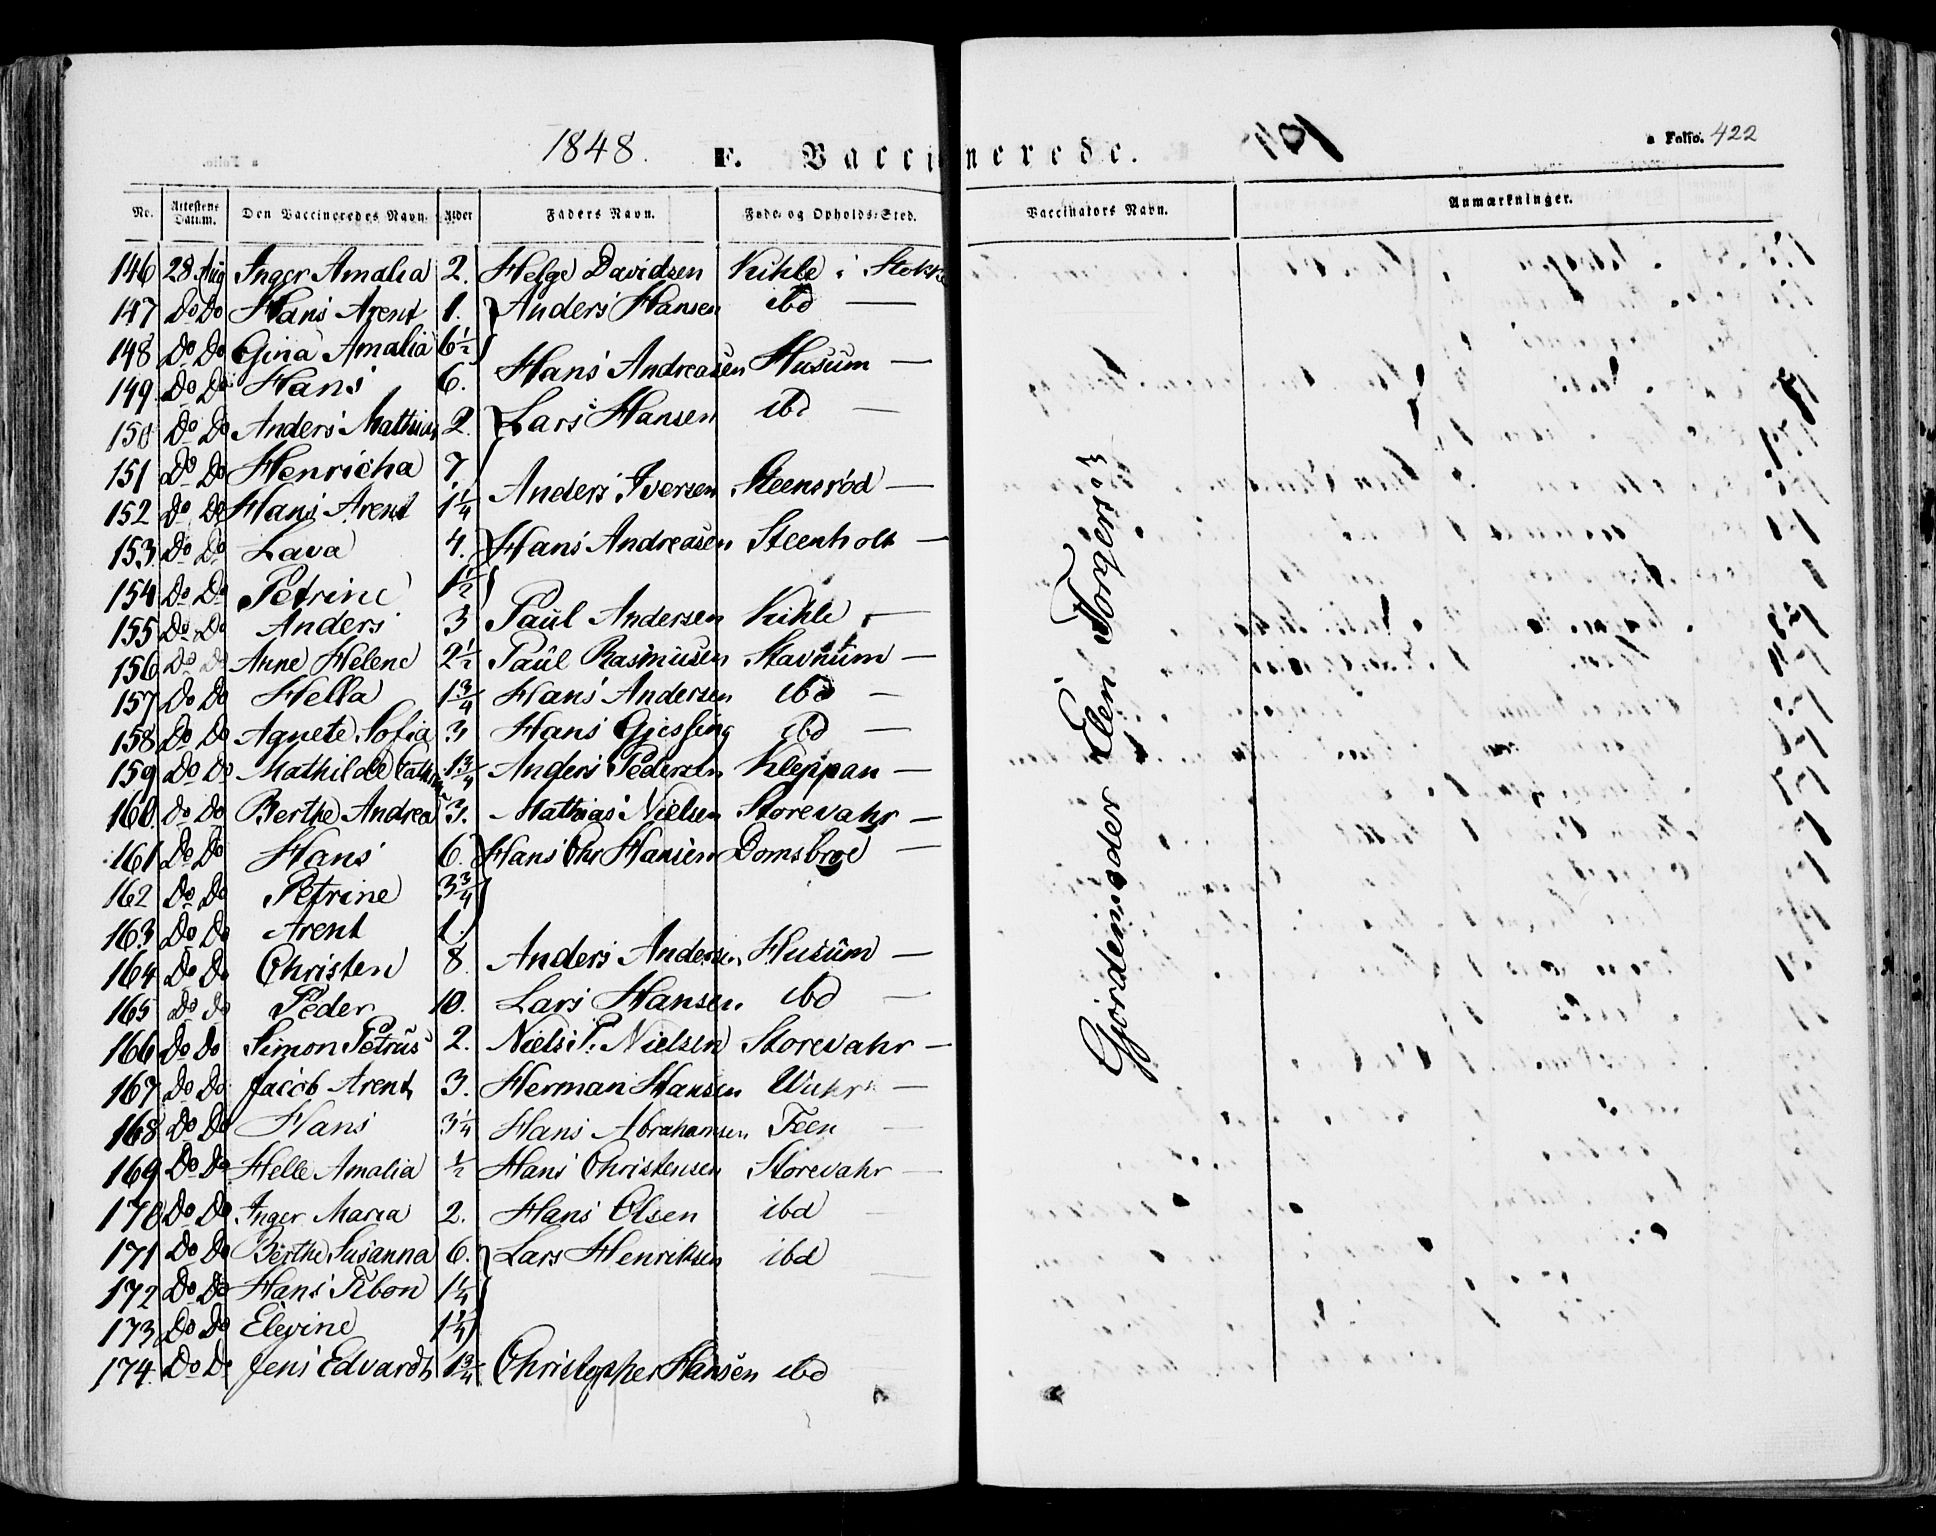 1848. F. Vaccinerede.
Folio. 422
No. Attestens Datum. Den Vaccineredes Navn. Alder Faders Navn. Føde- og Opholds-Sted. Vaccinators Navn. Anmærkninger.
146 28 Aug Inger Amalia 2. Helge Davidsen Kihle i Stokke
147 Do Do Hans Arent 1. Anders Hansen ibd —
148 Do Do Gina Amalia 6½
149. Do Do Hans 6. Hans Andreasen Husum —
150 Do Do Anders Mathias 2. Lars Hansen ibd —
151 Do Do Henricha 7.
152 Do Do Hans Arent 1¼ Anders Iversen Steensrød —
153. Do Do Lava 4. Hans Andreasen Steenholt —
154 Do Do Petrine 1½
155 Do Do Anders 3 Paul Andersen Kihle —
156 Do Do Anne Helene 2½ Paul Rasmusen Stavnum —
157 Do Do Hella 1¾ Hans Andersen ibd —
158 Do Do Agnete Sofia 3 Hans Gjessing ibd —
159 Do Do Mathilde Cathrine 1¾ Anders Pedersen Kleppan —
160. Do Do Berthe Andrea 3. Mathias Nielsen Storevahr —
161 Do Do Hans 6. Hans Chr Hansen Domsbroe —
162 Do Do Petrine 3¾
163 Do Do Arent 1.
164 Do Do Christen 8. Anders Andersen Husum —
165 Do Do Peder 10. Lars Hansen ibd —
166 Do Do Simon Petrus 2. Niels P. Nielsen Storevahr —
167 Do Do Jacob Arent 3. Herman Hansen —
168 Do Do Hans 3¼ Hans Abrahamsen Feen —
169 Do Do Helle Amalia ½ Hans Christensen Storevahr —
170 Do Do Inger Maria 2. Hans Olsen ibd —
171 Do Do Berthe Susanna 6. Lars Henriksen ibd
172 Do Do Hans Tibon 1¼
173. Do Do Elevine 1¼
174. Do Do Jens Edvardt 1¾ Christopher Hansen ibd
Gjordemoder Elen Torgers: